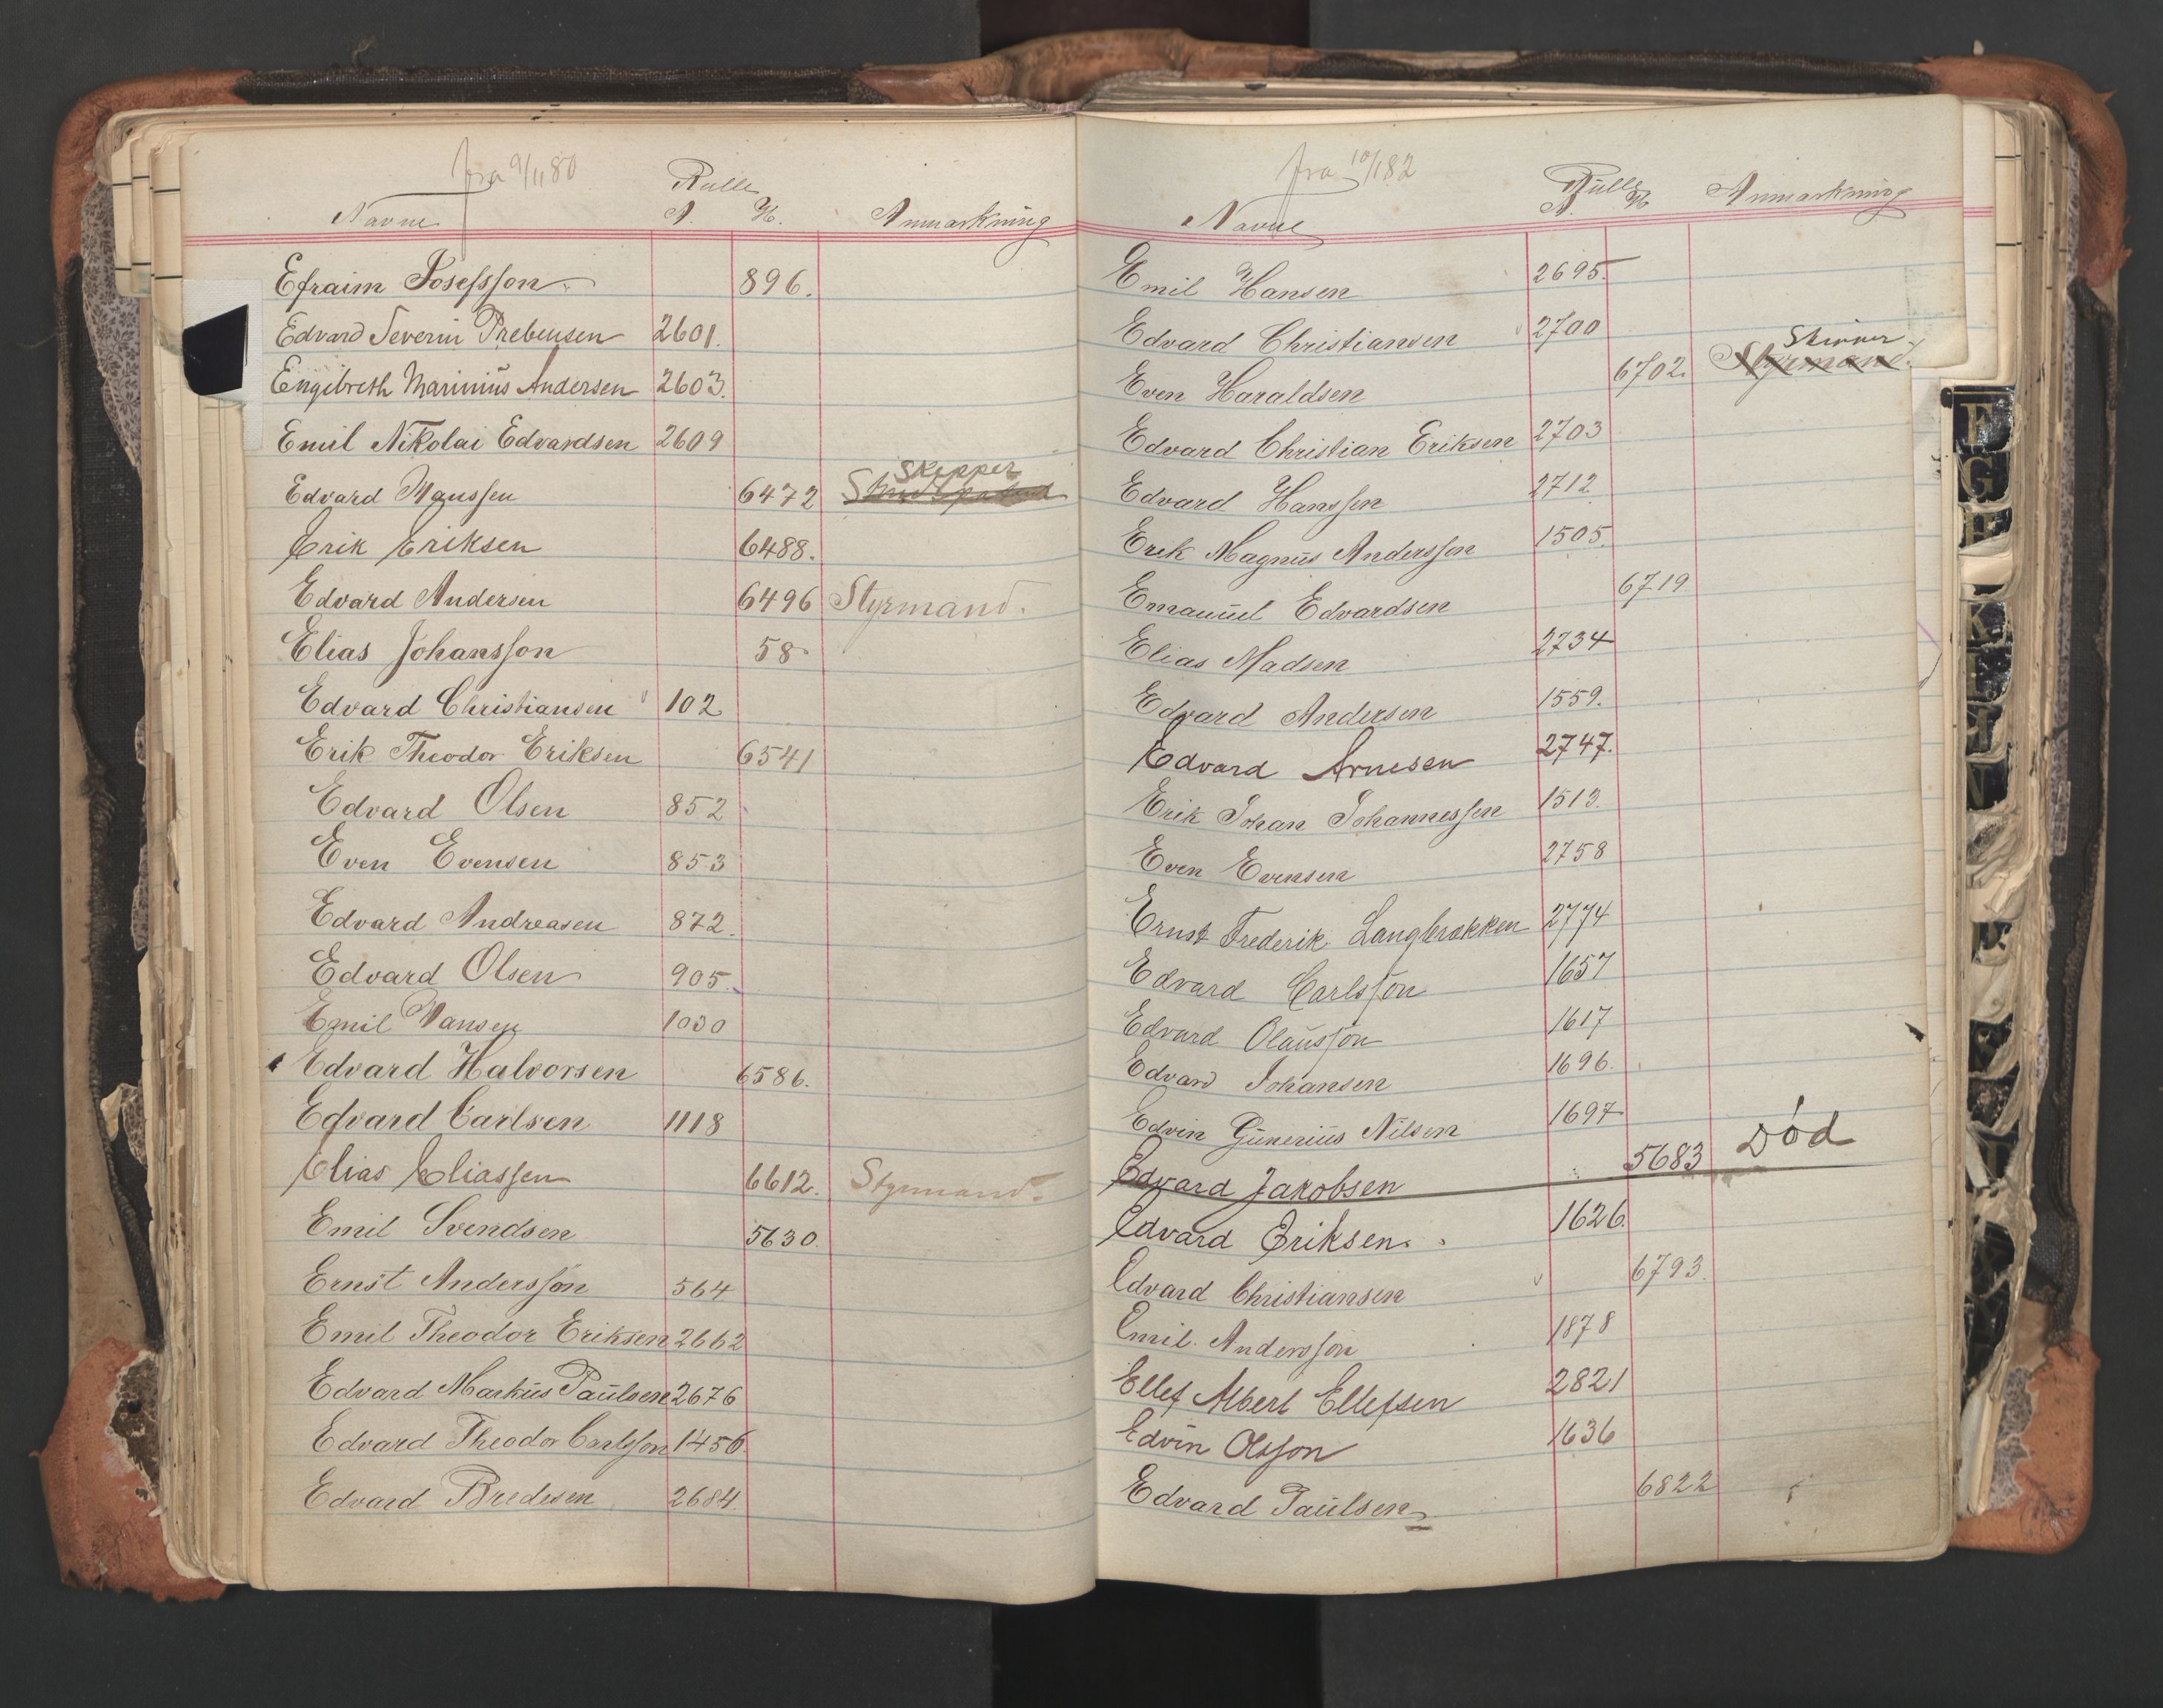 fra 9/11 80
Rulle
Navne A. H. Anmærkning
Efraim Josefsson 896.
Edvard Severin Prebensen 2601.
Engibreth Marinius Andersen 2603.
Emil Nikolai Edvardsen 2609
Skipper
Edvard Hanssen 6472
Erik Eriksen 6488.
Edvard Andersen 6496 Styrmand.
Elias Johansson 58
Edvard Christiansen 102
Erik Theodor Eriksen 6541
Edvard Olsen 852
Even Evensen 853
Edvard Andreasen 872.
Edvard Olsen 905.
Emil Hansen 1030
Edvard Halvorsen 6586.
Edvard Carlsen 1118
Elias Eliassen 6612. Styrmand.
Emil Svendsen 5630.
Ernst Andersson 564
Emil Theodor Eriksen 2662
Edvard Markus Paulsen 2676
Edvard Theodor Carlsson 1456.
Edvard Bredesen 2684.
fra 10/1 82
Rulle
Navne A. H. Anmærkning
Emil Hansen 2695.
Edvard Christiansen 2700
Skipper
Even Haraldsen 6702. Styrmand.
Edvard Christian Eriksen 2703
Edvard Hanssen 2712
Erik Magnus Andersson 1505.
Emanuel Edvardsen 6719
Elias Madsen 2734
Edvard Andersen 1559.
Edvard Arnesen 2747.
Erik Johan Johannessen 1513.
Even Evensen 2758
Ernst Frederik Langbrækken 2774
Edvard Carlsson 1657
Edvard Olausson 1617
Edvard Johansen 1696.
Edvin Gunerius Nilsen 1697
Edvard Jakobsen 5683 Død
Edvard Eriksen. 1626.
Edvard Christiansen 6793.
Emil Andersson 1878
Ellef Albert Ellefsen 2821
Edvin Olsson 1636
Edvard Paulsen 6822
F
G
K